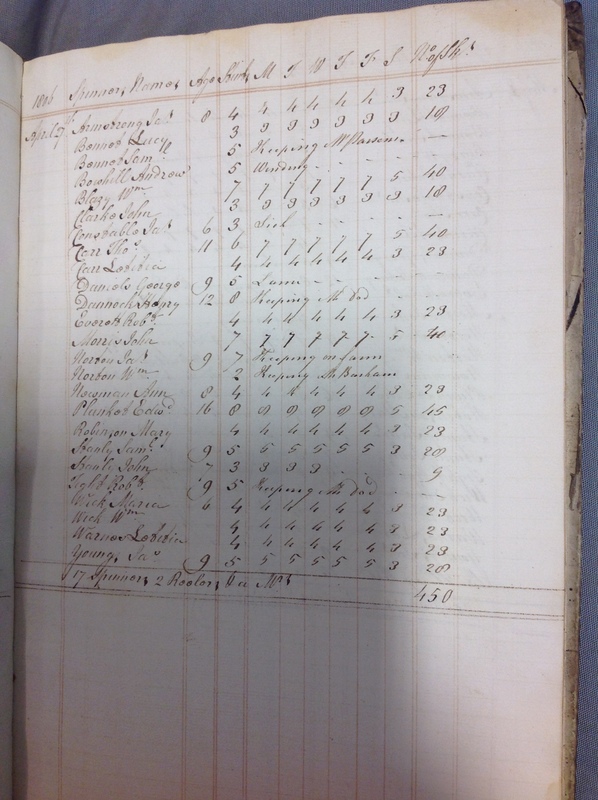 1806 Spinners Names Age Stint M T W T F S No of Sk.s
April 7th Armstrong Ja.s 8 4 4 4 4 4 4 3 23
Bennet Lucy 3 3 3 3 3 3 3 18
Bennet Sam.l 5 Keeping Mr Parsons —
Bowhill Andrew 5 Winding - - - - —
Blazy Wm 7 7 7 7 7 7 5 40
Clarke John 3 3 3 3 3 3 3 18
Constable Ja.s 6 3 Sick - - - - —
Carr Tho.s 11 6 7 7 7 7 7 5 40
Carr Letitia 4 4 4 4 4 4 3 23
Daniels George 9 5 Lame - - - - —
Dannock Henry 12 8 Keeping Mr Dad - - —
Everett Rob.t 4 4 4 4 4 4 3 23
Morris John 7 7 7 7 7 7 5 40
Norton Ja.s 9 7 Keeping on farm
Norton Wm 2 Keeping Mr Barham
Newman Ann 8 4 4 4 4 4 4 3 23
Plunket Edw.d 16 8 8 8 8 8 8 5 45
Robinson Mary 4 4 4 4 4 4 3 23
Stanly Sam.l 9 5 5 5 5 5 5 3 28
Stanly John 7 3 3 3 3 - - - 9
Tight Rob.t 9 5 Keeping Mr Dad - - —
Wick Maria 6 4 4 4 4 4 4 3 23
Wick Wm 4 4 4 4 4 4 3 23
Warner Letitia 4 4 4 4 4 4 3 23
Young Ja.s 9 5 5 5 5 5 5 3 28
17 Spinners 2 Reelers 450